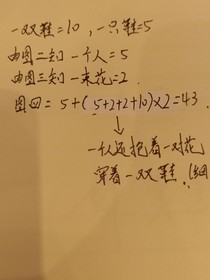 一双鞋=10，一只鞋=5
由图二知一个人=5
由图三知一束花=2
图四=5+(5+2+2+10)×2=43
一个人还抱着一对花
穿着一双鞋